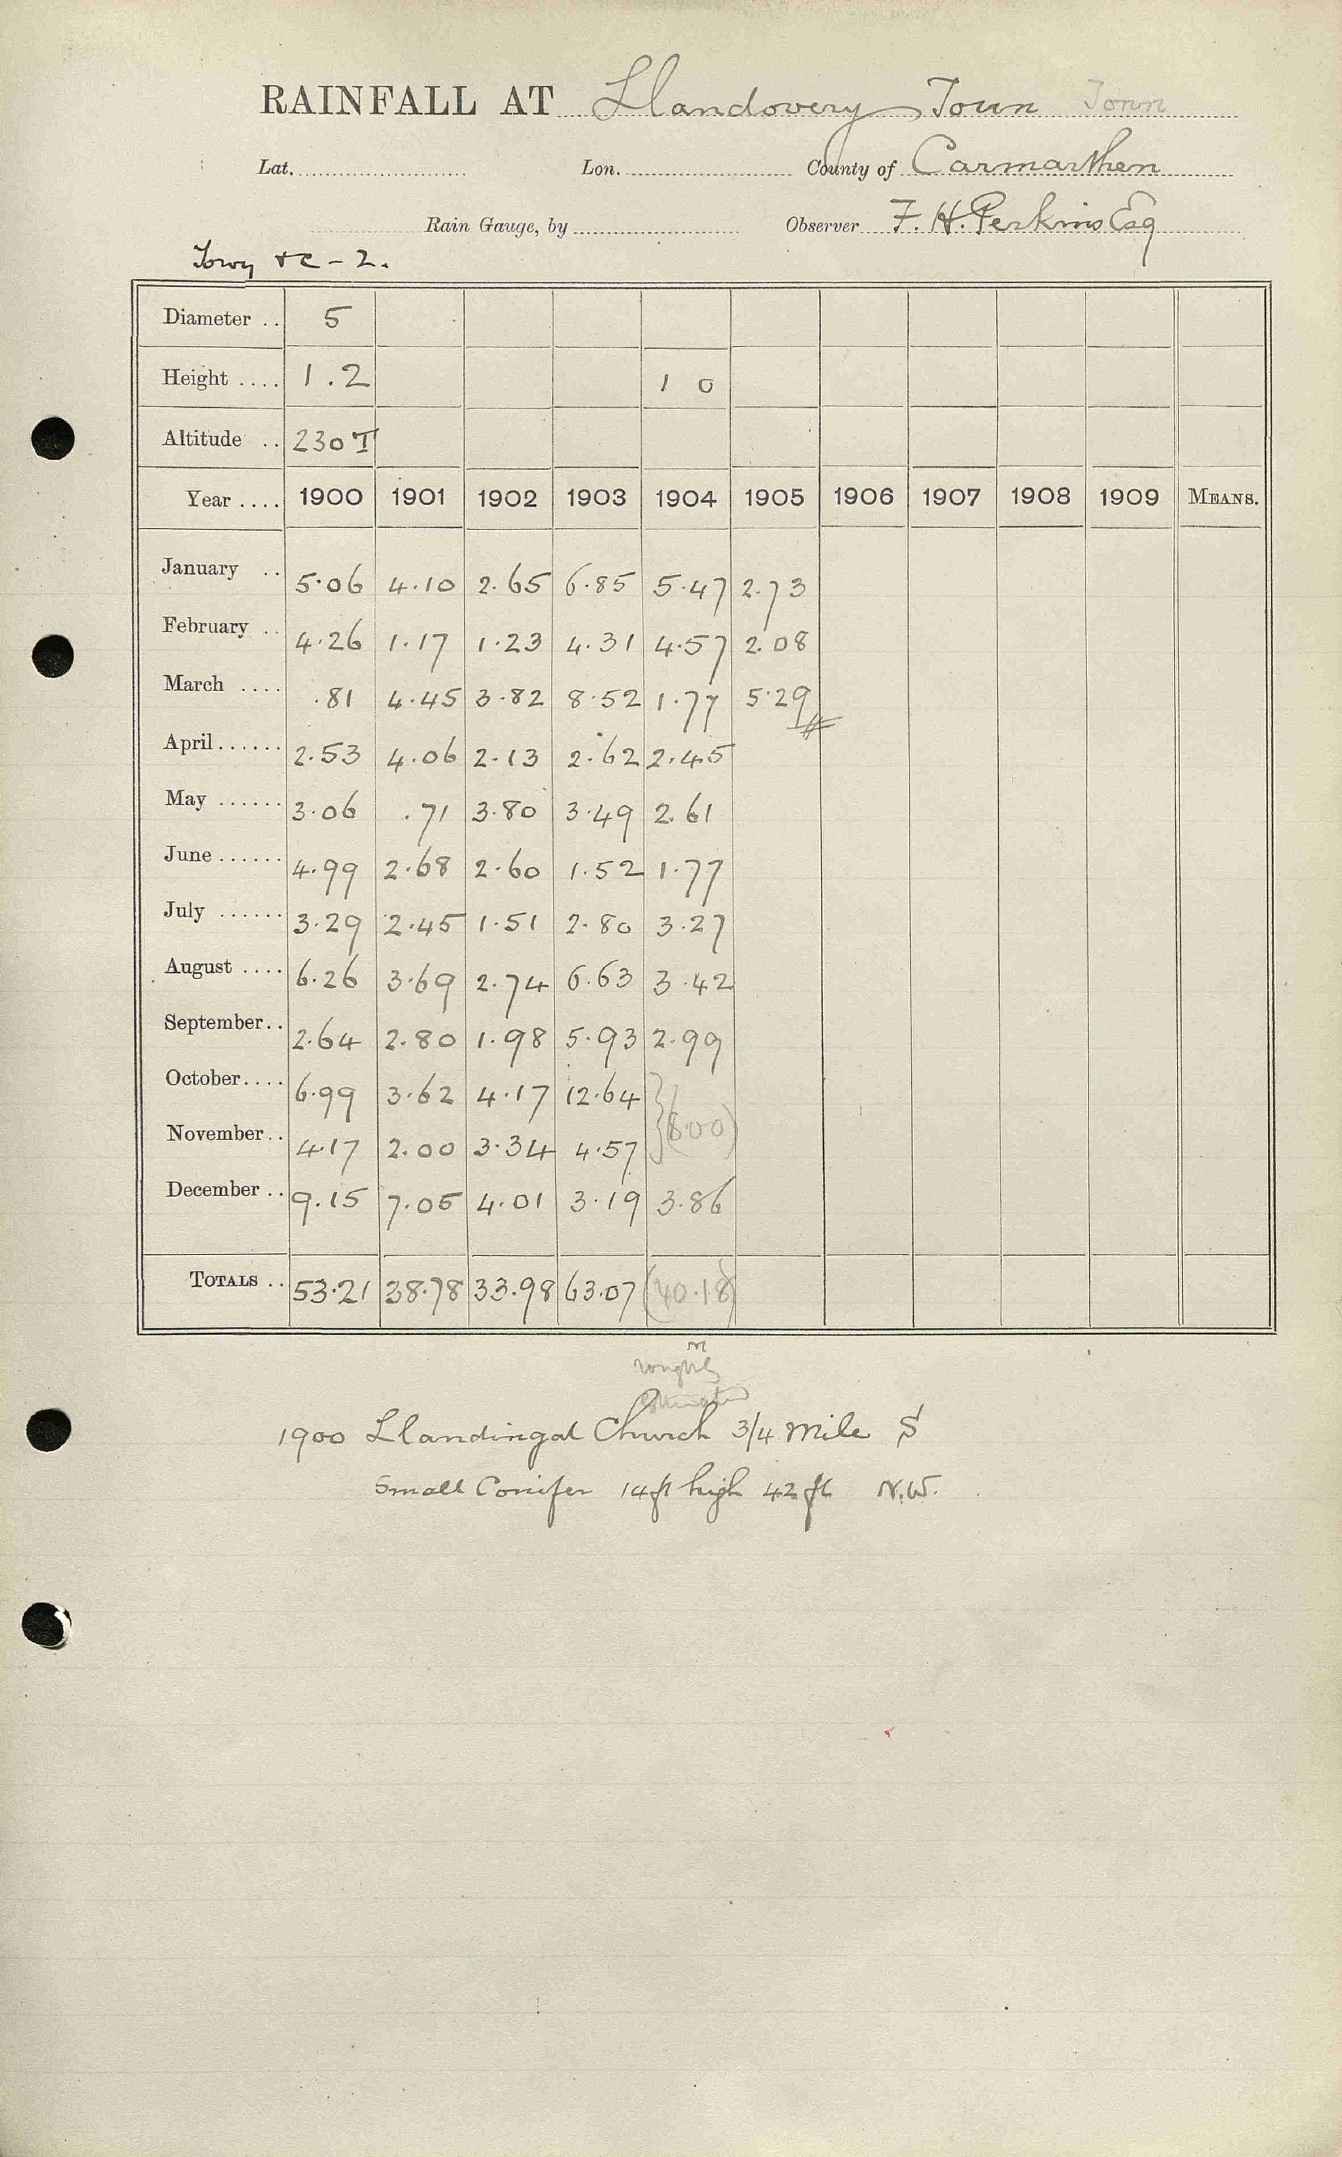 RAINFALL AT Llandovery Toun Tonn
Lat. Lon. County of Carmarthen
Rain Gauge, by Observer F. H. Perkins Esq
Towy &c - 2.
Diameter .. 5
Height .... 1.2 1 0
Altitude .. 230 T
Year .... 1900 1901 1902 1903 1904 1905 1906 1907 1908 1909 MEANS.
January .. 5.06 4.10 2.65 6.85 5.47 2.73
February .. 4.26 1.17 1.23 4.31 4.57 2.08
March .... .81 4.45 3.82 8.52 1.77 5.29
April...... 2.53 4.06 2.13 2.62 2.45
May ...... 3.06 .71 3.80 3.49 2.61
June ...... 4.99 2.68 2.60 1.52 1.77
July ...... 3.29 2.45 1.51 2.80 3.27
August .... 6.26 3.69 2.74 6.63 3.42
September.. 2.64 2.80 1.98 5.93 2.99
October.... 6.99 3.62 4.17 12.64
(8.00)
November.. 4.17 2.00 3.34 4.57
December .. 9.15 7.05 4.01 3.19 3.86
TOTALS .. 53.21 38.78 33.98 63.07 (40.18)
roughly
estimated
1900 Llandingat Church 3/4 mile S
Small Conifer 14 ft high 42 ft N.W.